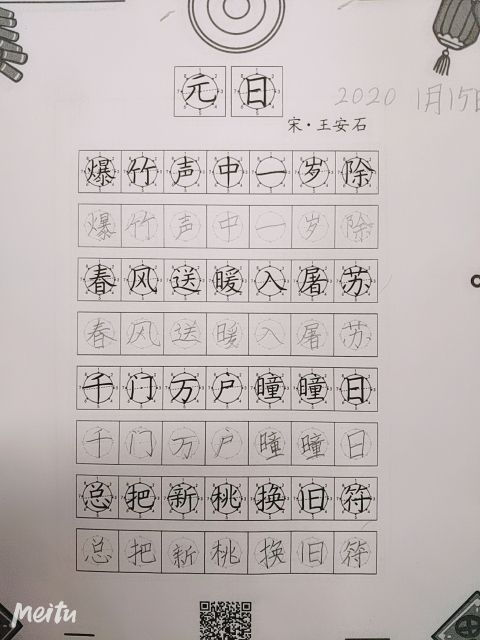 元日
2020 1月15日
宋·王安石
爆竹声中一岁除
爆竹声中一岁除
春风送暖入屠苏
春风送暖入屠苏
千门万户曈曈日
千门万户瞳瞳日
总把新桃换旧符
总把新桃换旧符
Meitu